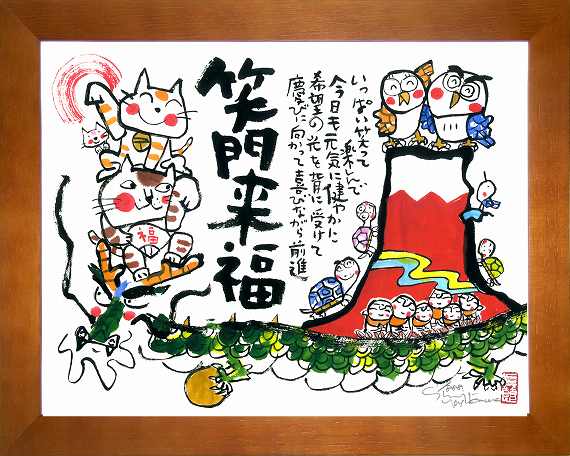 笑門来福
いっぱい笑って
楽しんで
今日も元気に健やかに
希望の光を背に受けて
慶びに向かって喜びながら前進
福